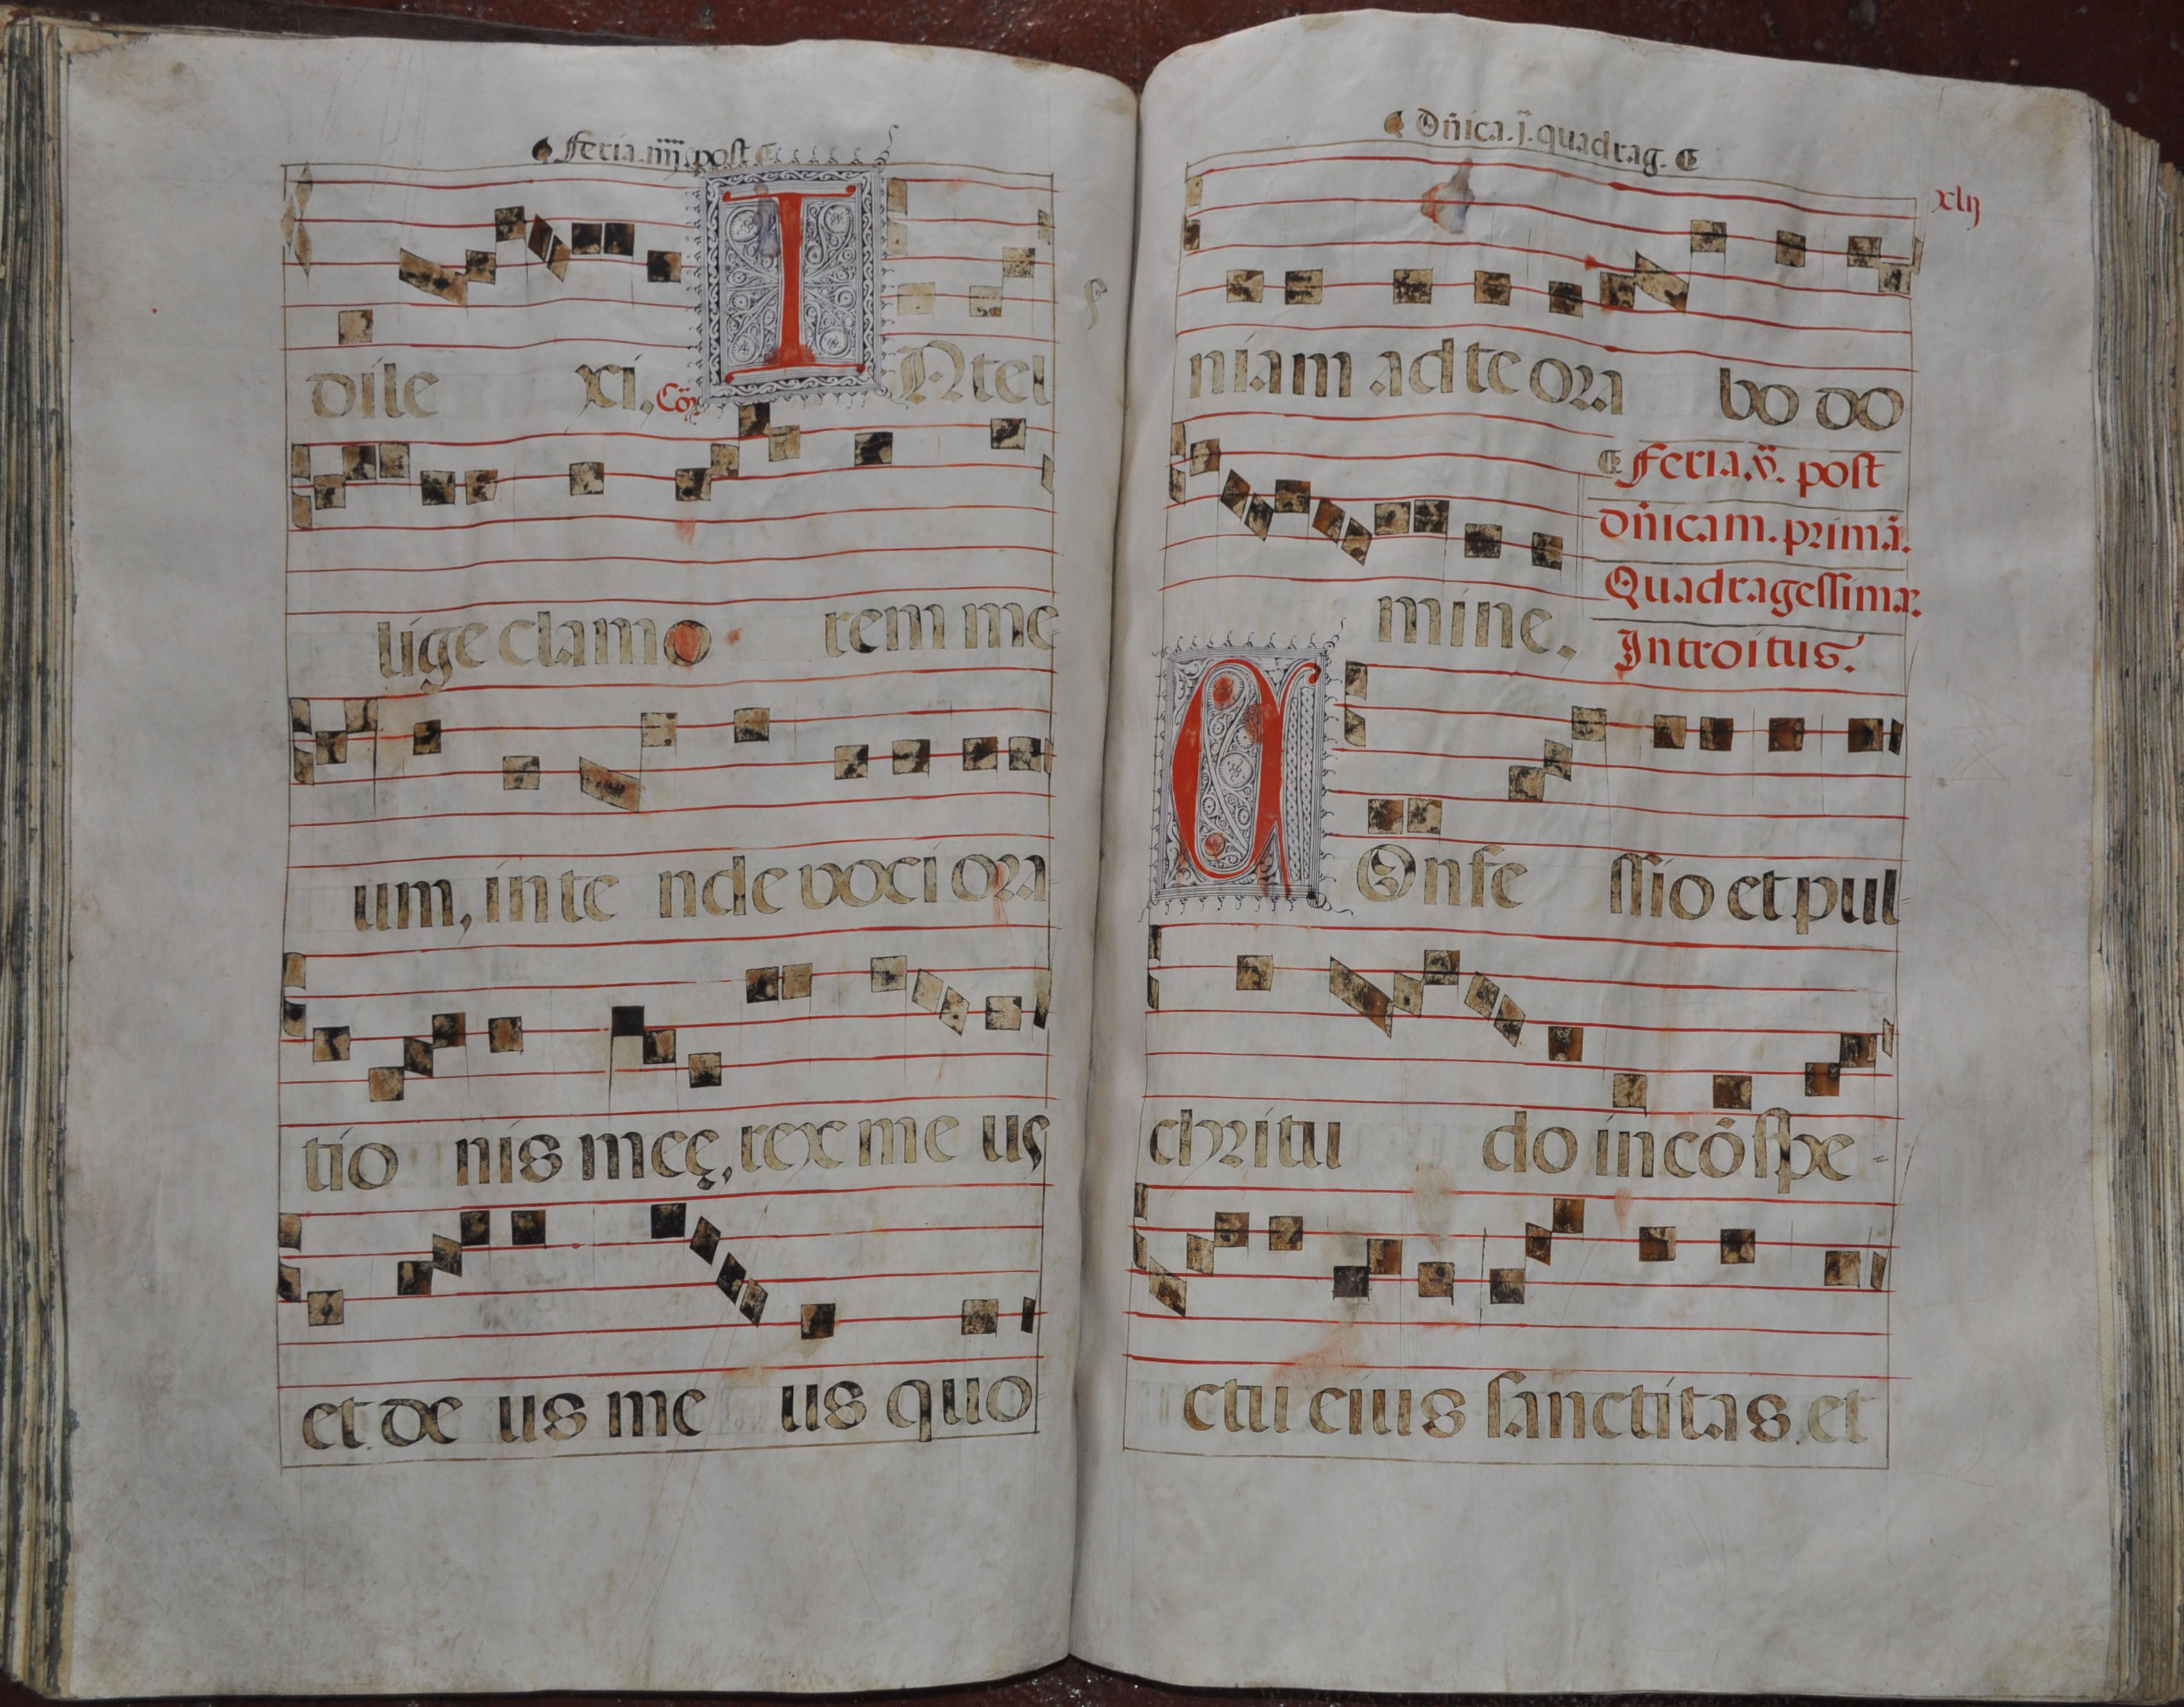 Feria. iiij. post
dile xi. Cõ. I Ntel
lige clamo rem me
um, in te nde voci ora
tio nis meę, rex me us
et de us me us quo
Dñica. j. quadrag.
xlij
niam ad te ora bo do
mine,
Feria. v. post
dñicam. primã.
Quadragessimæ.
Introitus.
C Onfe ssio et pul-
chritu do in cõspe-
ctu eius sanctitas. et